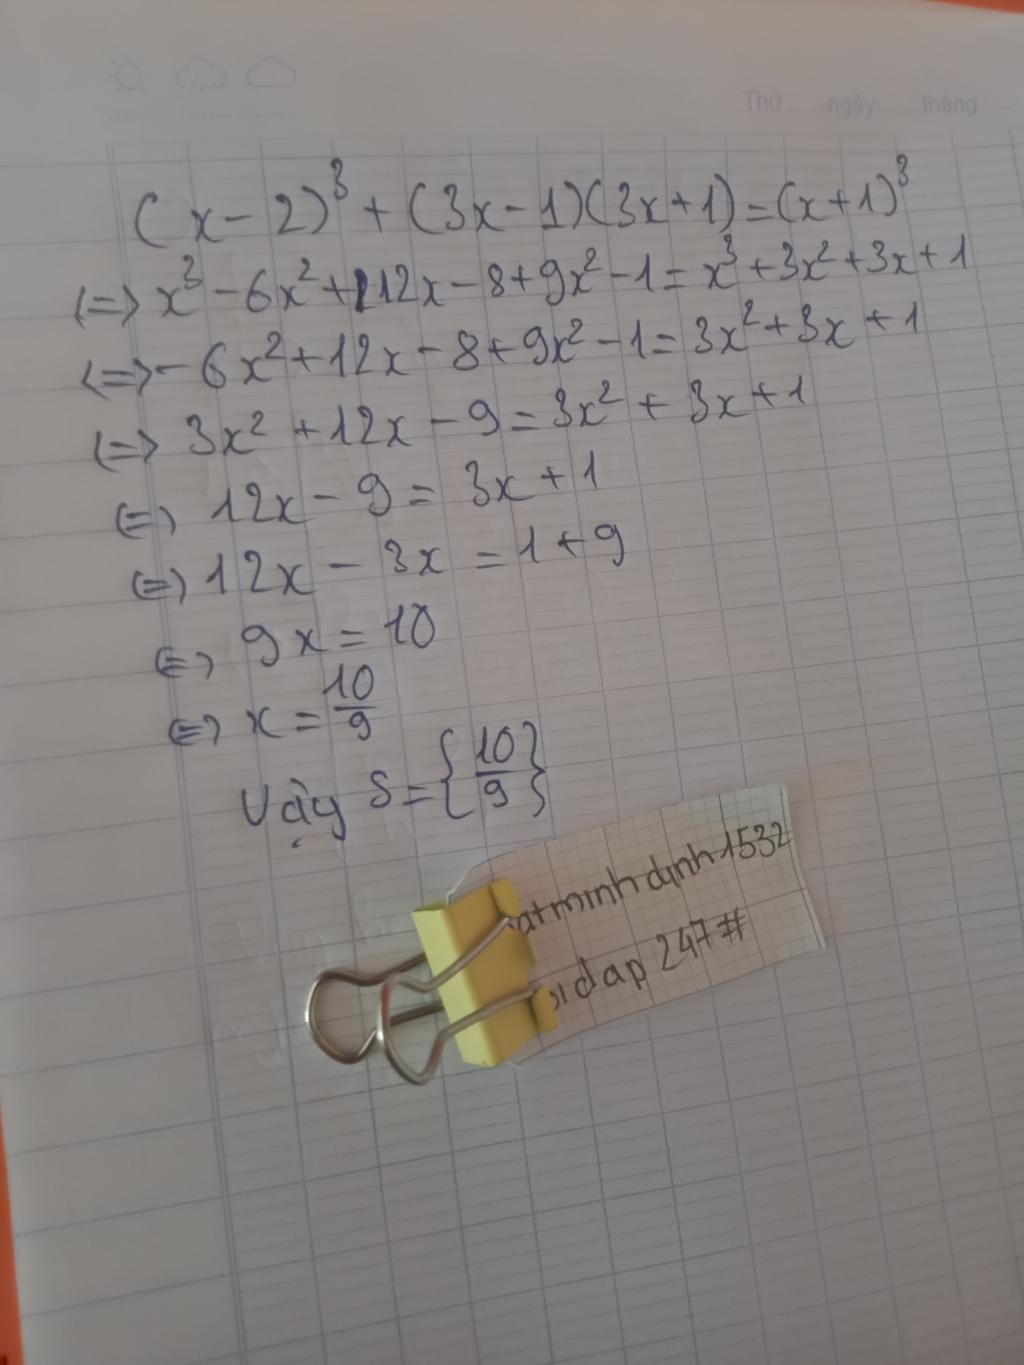 Thứ ngày tháng
(x-2)³+(3x-1)(3x+1)=(x+1)³
<=> x³-6x²+12x-8+9x²-1=x³+3x²+3x+1
<=> -6x²+12x-8+9x²-1=3x²+3x+1
<=> 3x²+12x-9=3x²+3x+1
<=> 12x-9=3x+1
<=> 12x-3x=1+9
<=> 9x=10
<=> x=10/9
Vậy S={10/9}
atminhdinh1532
dap 247#